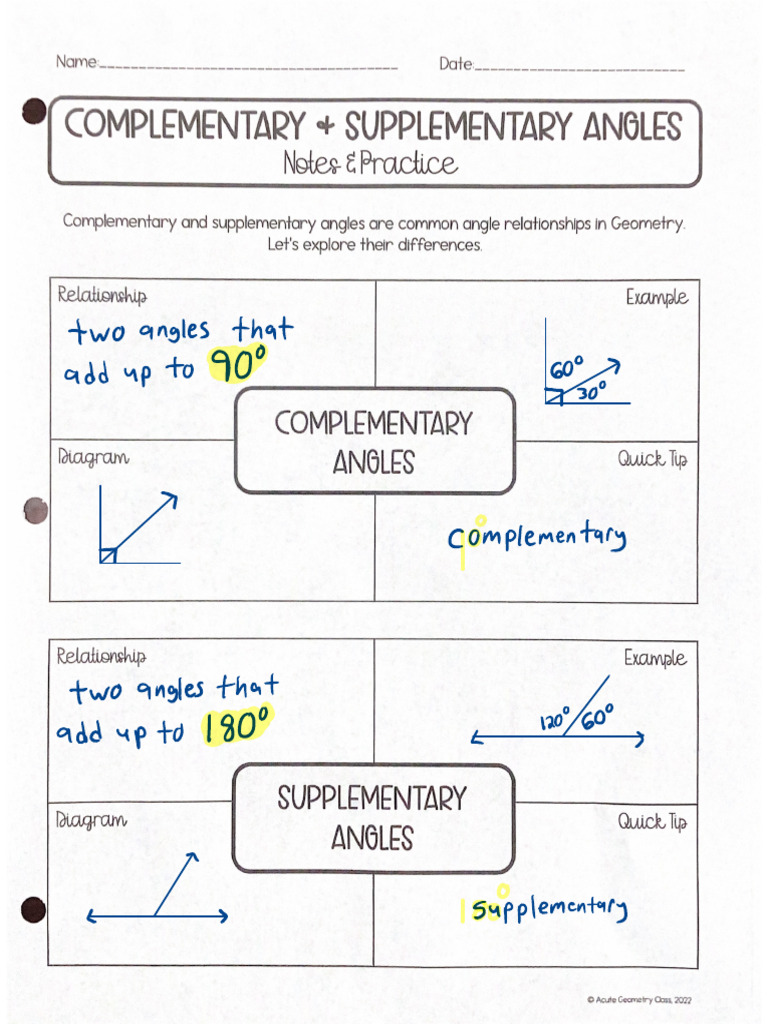 Name:_____________________________________ Date:__________________________
COMPLEMENTARY + SUPPLEMENTARY ANGLES
Notes & Practice
Complementary and supplementary angles are common angle relationships in Geometry.
Let's explore their differences.
Relationship
two angles that
add up to 90°
Example
60°
30°
COMPLEMENTARY
ANGLES
Diagram
Quick Tip
complementary
Relationship
two angles that
add up to 180°
Example
120° 60°
SUPPLEMENTARY
ANGLES
Diagram
Quick Tip
supplementary
© Acute Geometry Class, 2022